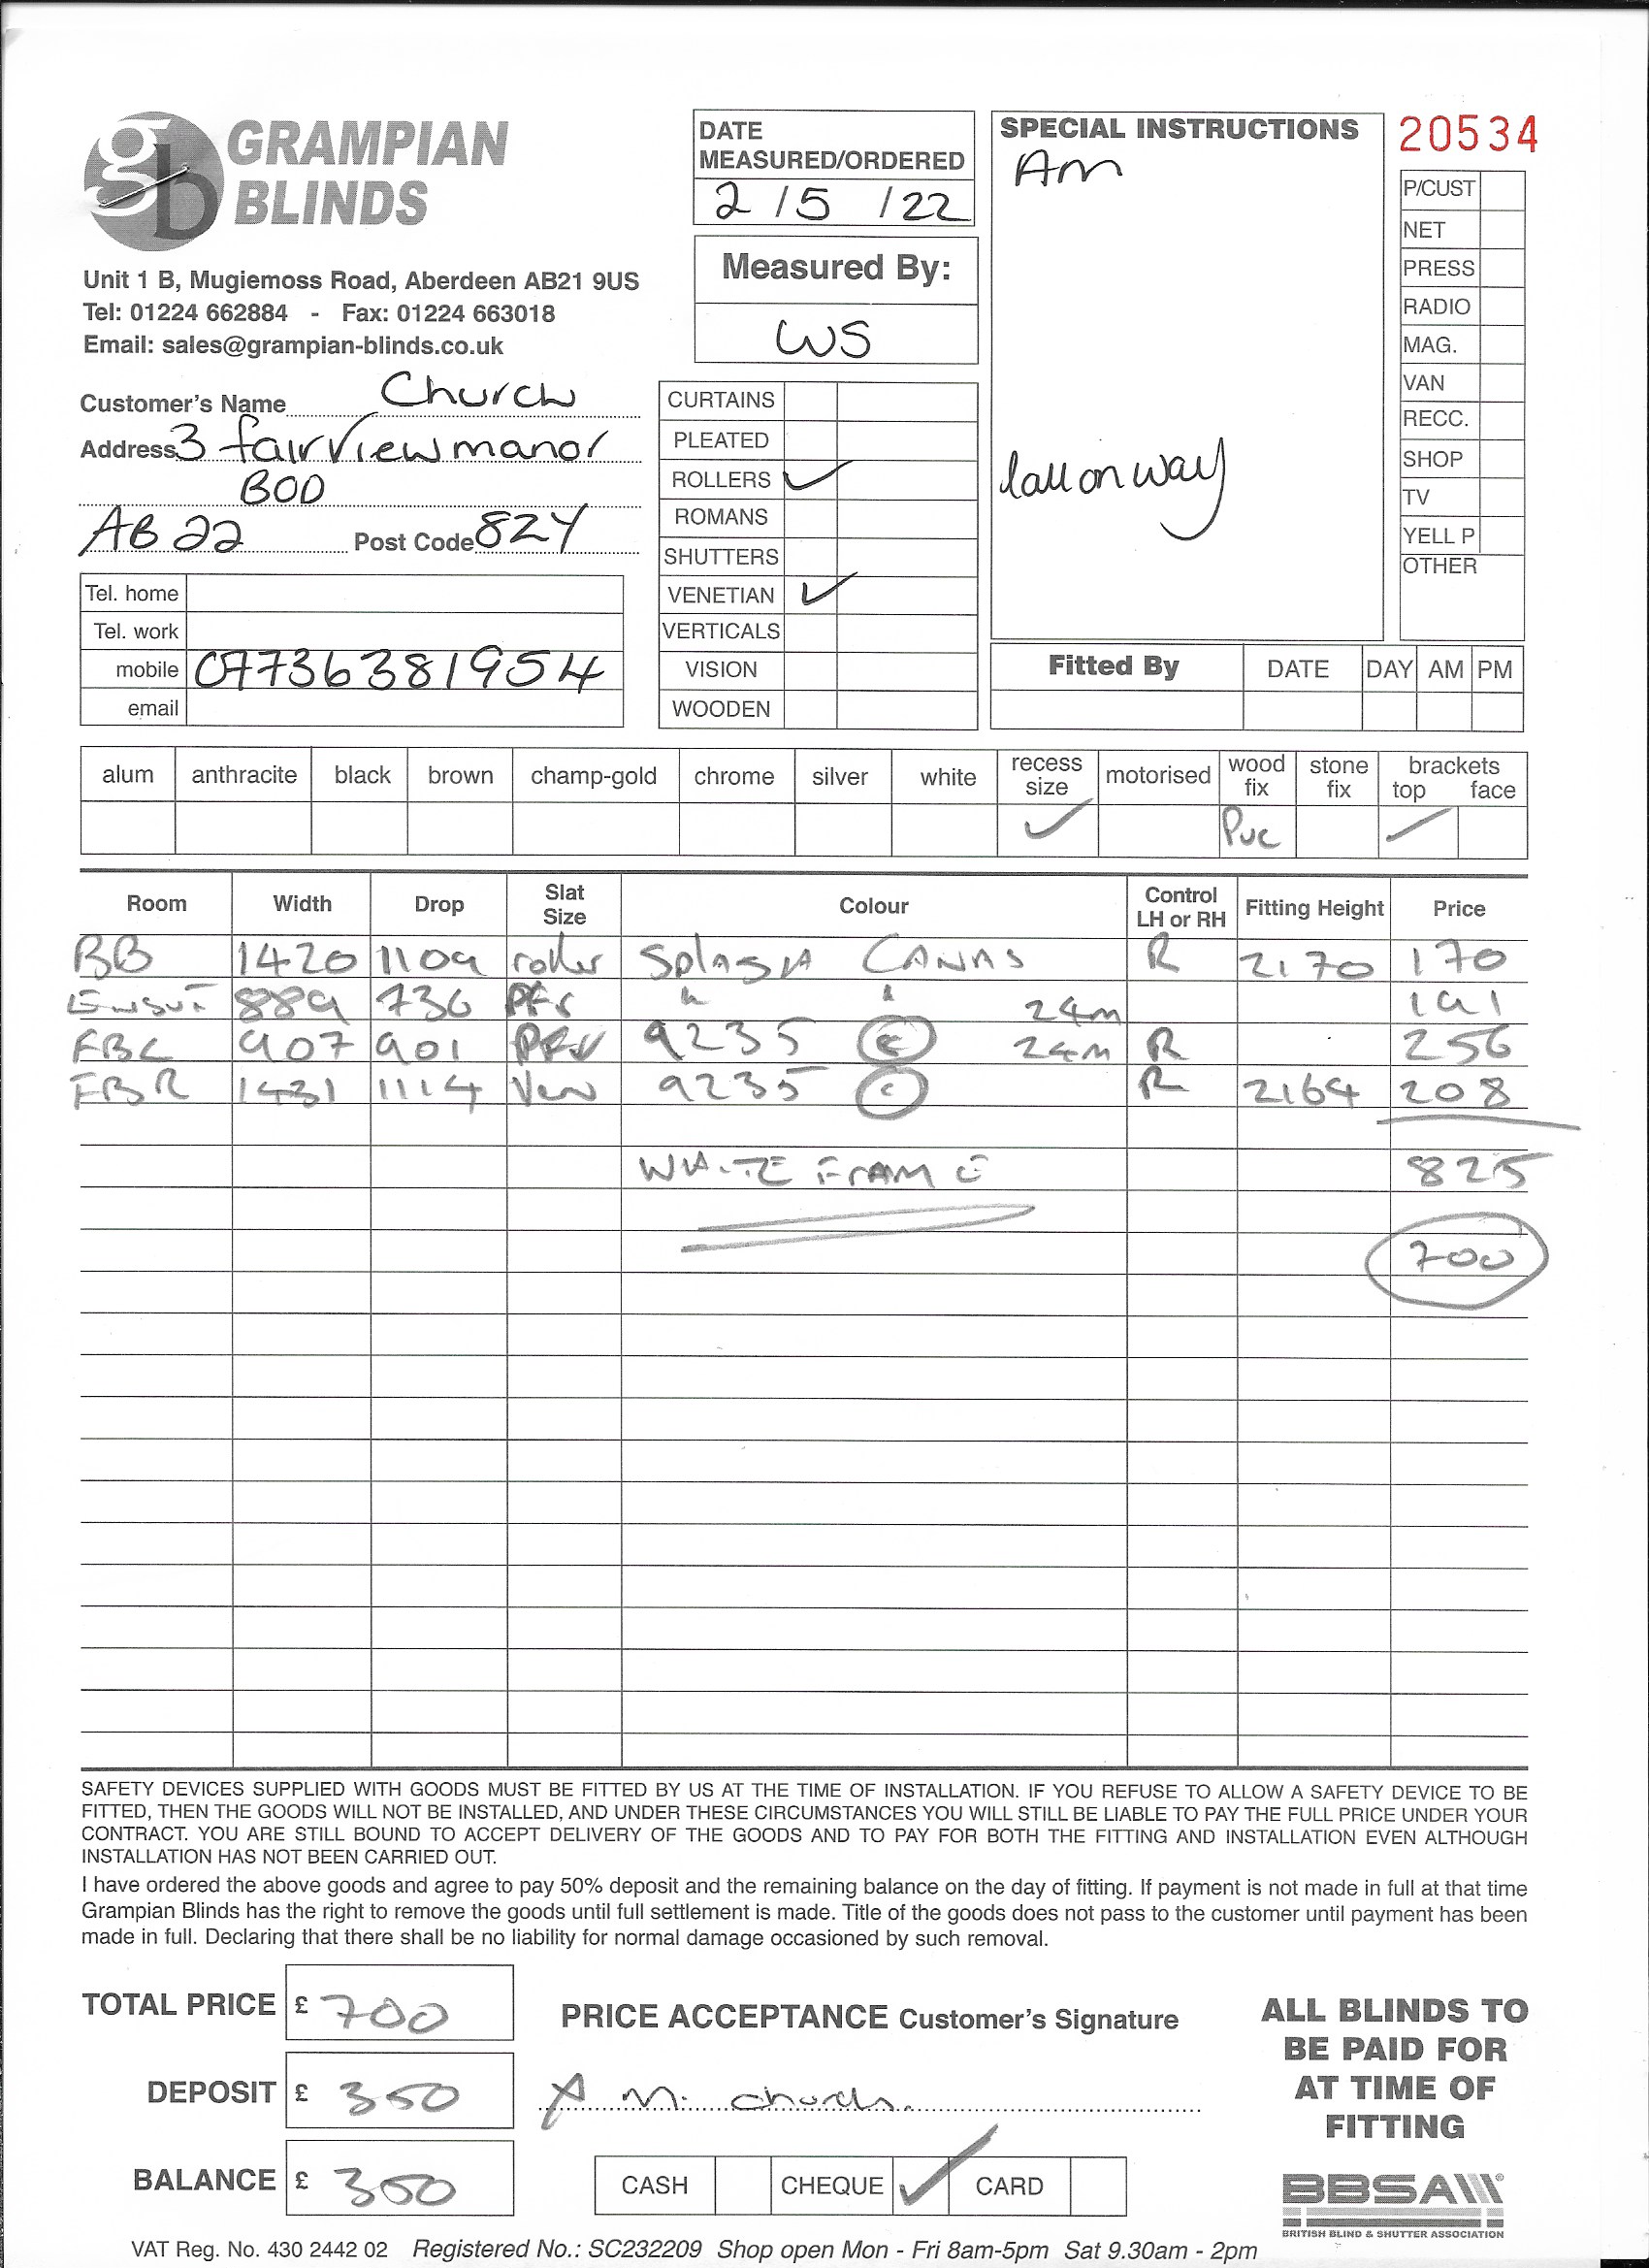 gb GRAMPIAN BLINDS
Unit 1 B, Mugiemoss Road, Aberdeen AB21 9US
Tel: 01224 662884 - Fax: 01224 663018
Email: sales@grampian-blinds.co.uk
DATE MEASURED/ORDERED
2 / 5 / 22
Measured By:
WS
SPECIAL INSTRUCTIONS
Am
Call on way
20534
P/CUST
NET
PRESS
RADIO
MAG.
VAN
RECC.
SHOP
TV
YELL P
OTHER
Customer's Name Church
Address 3 fairview manor
BOD
AB22 Post Code 8ZY
Tel. home
Tel. work
mobile 07736381954
email
CURTAINS
PLEATED
ROLLERS ✓
ROMANS
SHUTTERS
VENETIAN ✓
VERTICALS
VISION
WOODEN
Fitted By DATE DAY AM PM
alum anthracite black brown champ-gold chrome silver white recess size motorised wood fix stone fix brackets top face
✓ PVC ✓
Room Width Drop Slat Size Colour Control LH or RH Fitting Height Price
BB 1420 1109 roller SPLASH CANVAS R 2170 170
Ensui 889 736 PFr " " 24m 191
FBL 907 901 9235 C 24m R 256
FBR 1431 1114 Ven 9235 C R 2164 208
WHITE FRAME 825
700
SAFETY DEVICES SUPPLIED WITH GOODS MUST BE FITTED BY US AT THE TIME OF INSTALLATION. IF YOU REFUSE TO ALLOW A SAFETY DEVICE TO BE
FITTED, THEN THE GOODS WILL NOT BE INSTALLED, AND UNDER THESE CIRCUMSTANCES YOU WILL STILL BE LIABLE TO PAY THE FULL PRICE UNDER YOUR
CONTRACT. YOU ARE STILL BOUND TO ACCEPT DELIVERY OF THE GOODS AND TO PAY FOR BOTH THE FITTING AND INSTALLATION EVEN ALTHOUGH
INSTALLATION HAS NOT BEEN CARRIED OUT.
I have ordered the above goods and agree to pay 50% deposit and the remaining balance on the day of fitting. If payment is not made in full at that time
Grampian Blinds has the right to remove the goods until full settlement is made. Title of the goods does not pass to the customer until payment has been
made in full. Declaring that there shall be no liability for normal damage occasioned by such removal.
TOTAL PRICE £ 700
DEPOSIT £ 350
BALANCE £ 350
PRICE ACCEPTANCE Customer's Signature
X M. Church.
CASH CHEQUE ✓ CARD
ALL BLINDS TO
BE PAID FOR
AT TIME OF
FITTING
BBSA
BRITISH BLIND & SHUTTER ASSOCIATION
VAT Reg. No. 430 2442 02 Registered No.: SC232209 Shop open Mon - Fri 8am-5pm Sat 9.30am - 2pm